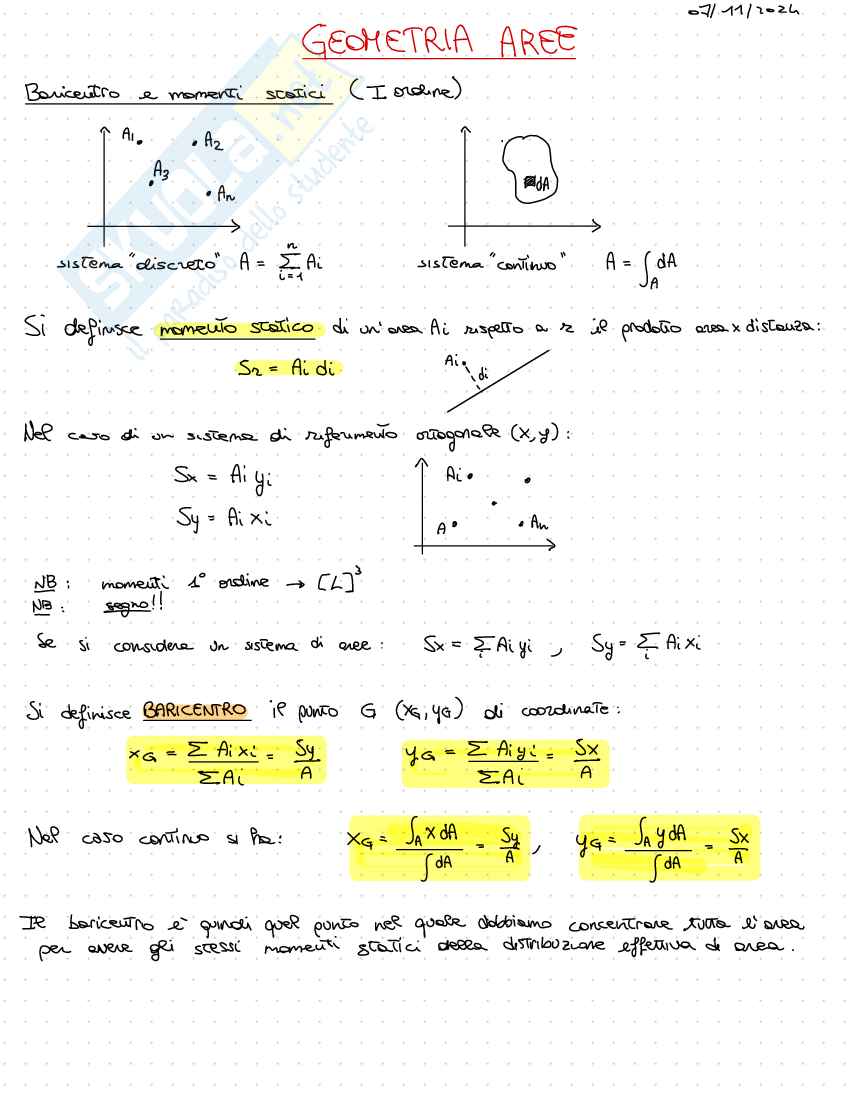 07/11/2024
GEOMETRIA AREE
Baricentro e momenti statici (I ordine)
A1 A2 A3 An
dA
sistema "discreto" A = ∑_{i=1}^{n} Ai
sistema "continuo" A = ∫_A dA
Si definisce momento statico di un'area Ai rispetto a r il prodotto area x distanza:
Sr = Ai di
Ai di
Nel caso di un sistema di riferimento ortogonale (x,y):
Sx = Ai yi
Sy = Ai xi
Ai
A An
NB: momenti 1° ordine → [L]³
NB: segno!!
Se si considera un sistema di aree: Sx = ∑_i Ai yi , Sy = ∑_i Ai xi
Si definisce BARICENTRO il punto G (xG, yG) di coordinate:
xG = ∑ Ai xi / ∑ Ai = Sy / A
yG = ∑ Ai yi / ∑ Ai = Sx / A
Nel caso continuo si ha: xG = ∫_A x dA / ∫ dA = Sy / A , yG = ∫_A y dA / ∫ dA = Sx / A
Il baricentro è quindi quel punto nel quale dobbiamo concentrare tutta l'area
per avere gli stessi momenti statici della distribuzione effettiva di area.
SKUOLA.net
il paradiso dello studente